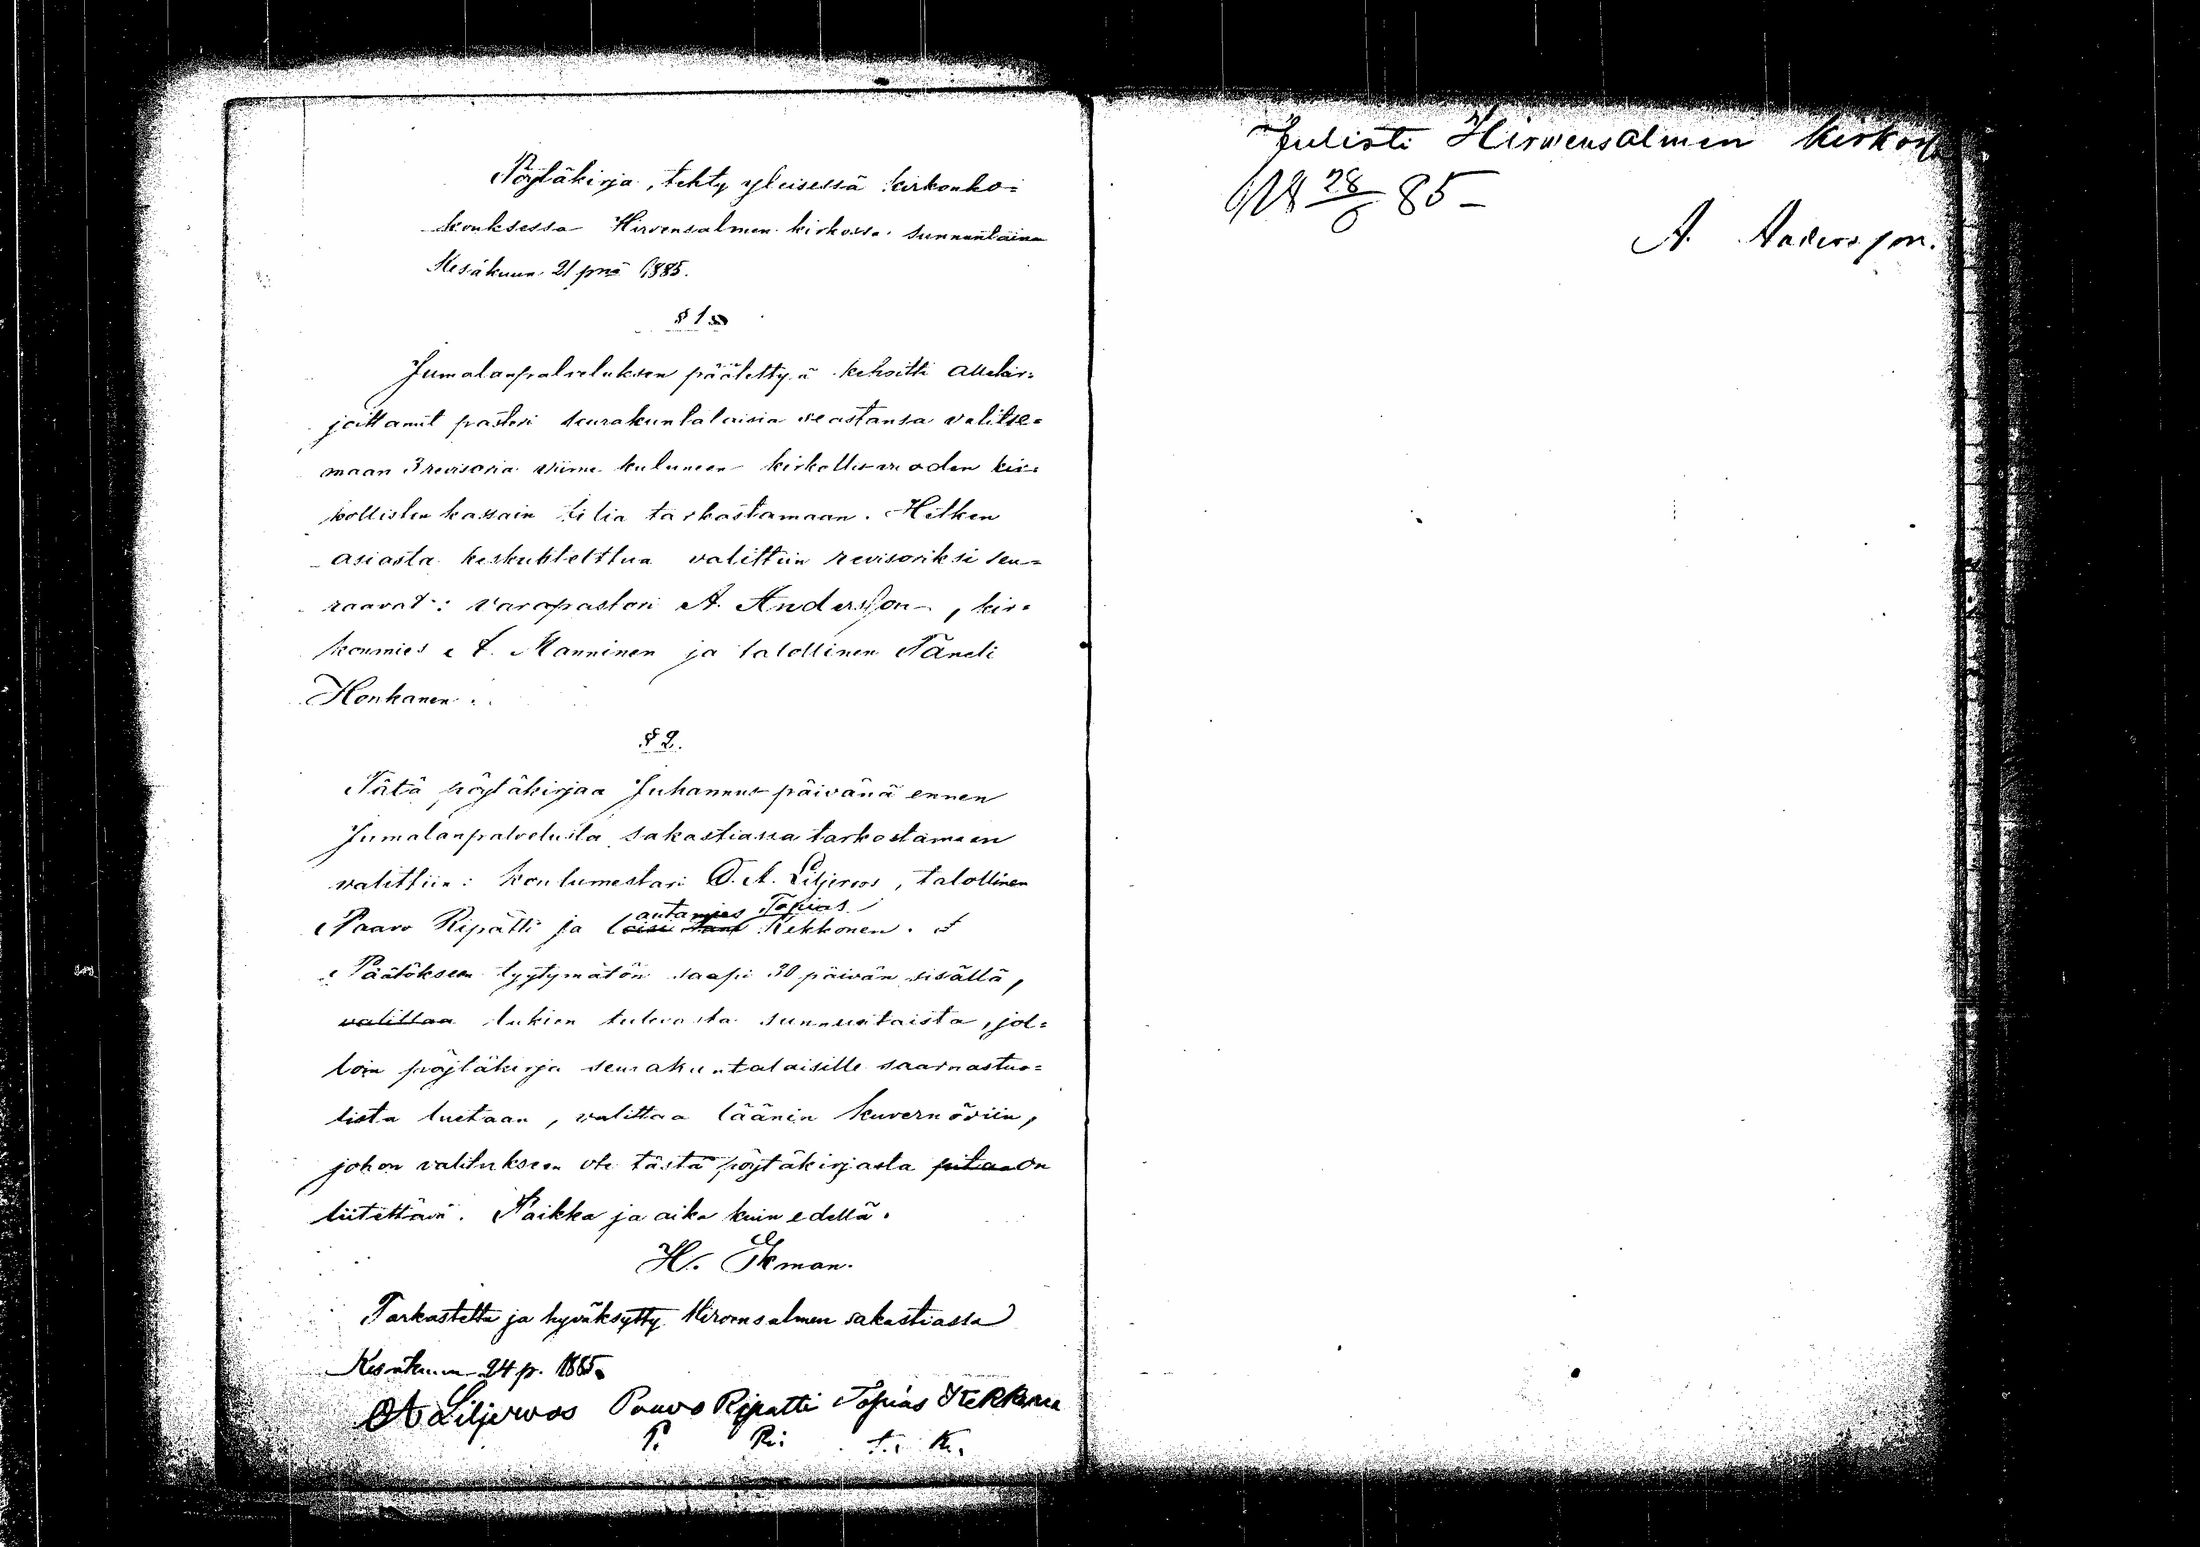 Pöytäkirja, tehty yleisessä kirkonko=
kouksessa Hirvensalmen kirkossa sunnuntaina
Kesäkuun 21 pnä 1885.
§ 1
Jumalanpalveluksen päätettyä kehoitti allekir=
joittanut pastori seurakuntalaisia seastansa valitse=
maan 3 revisoria viime kuluneen kirkollisvuoden kir=
kollisten kassain tiliä tarkastamaan. Hetken
asiasta keskusteltua valittiin revisoriksi seu=
raavat: varapastori A. Andersson, kir=
konmies A. Manninen ja talollinen Taneli
Honkanen.
§ 2.
Tätä pöytäkirjaa Juhannus päivänä ennen
Jumalanpalvelusta sakastiassa tarkastamaan
valittiin: koulumestari O. A. Liljeroos, talollinen
autamies Tapias
Paavo Ripatti ja l Kekkonen.
Päätöksen tyytymätön saapi 30 päivän sisällä,
valittaa lukien tulevasta sunnuntaista, jol=
loin pöytäkirja seurakuntalaisille saarnastuo=
lista luetaan, valittaa läänin kuvernööriin,
johon valitukseen ote tästä pöytäkirjasta pitää on
liitettävä. Paikka ja aika kuin edellä.
H. Ekman.
Tarkastettu ja hyväksytty Hirvensalmen sakastiassa
Kesäkuun 24 p. 1885.
OA Liljeroos Paavo Ripatti Topias Kekkonen
P. Ri: T. K.
Julisti Hirvensalmen kirkossa
28/6 85
A. Andersson.